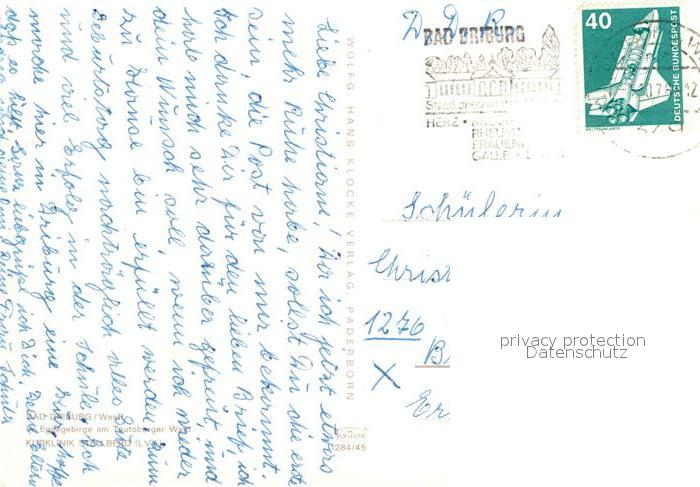 Liebe Christiane! Da ich jetzt etwas
mehr Ruhe habe, sollst Du die erste
sein die Post von mir bekommt.
Ich danke Dir für den lieben Brief, ich
habe mich sehr darüber gefreut, und
dein Wunsch soll, wenn ich wieder
zu Hause bin erfüllt werden. Zum
Geburtstag nachträglich alles Gute
und viel Erfolg in der Schule. Ich
mache hier in Driburg eine Kur, hoffe
daß es hilft. Sei lieb gegrüßt
WOLFG. HANS KLOCKE VERLAG, PADERBORN
BAD DRIBURG / Westf.
im Eggegebirge am Teutoburger Wald
KURKLINIK STELLBERG (LVA)
284/45
D D R
BAD DRIBURG
HERZ •
RHEUMA
FRAUEN
GALLE •
40
DEUTSCHE BUNDESPOST
WELTRAUMLABOR
Schülerin
Christ
1276
B
X
Er
privacy protection
Datenschutz